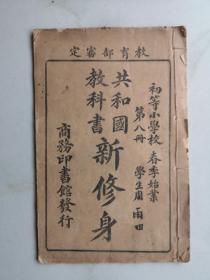 教育部審定
初等小學校 春季始業
第八冊 學生
共和國
教科書
新修身
商務印書館發行